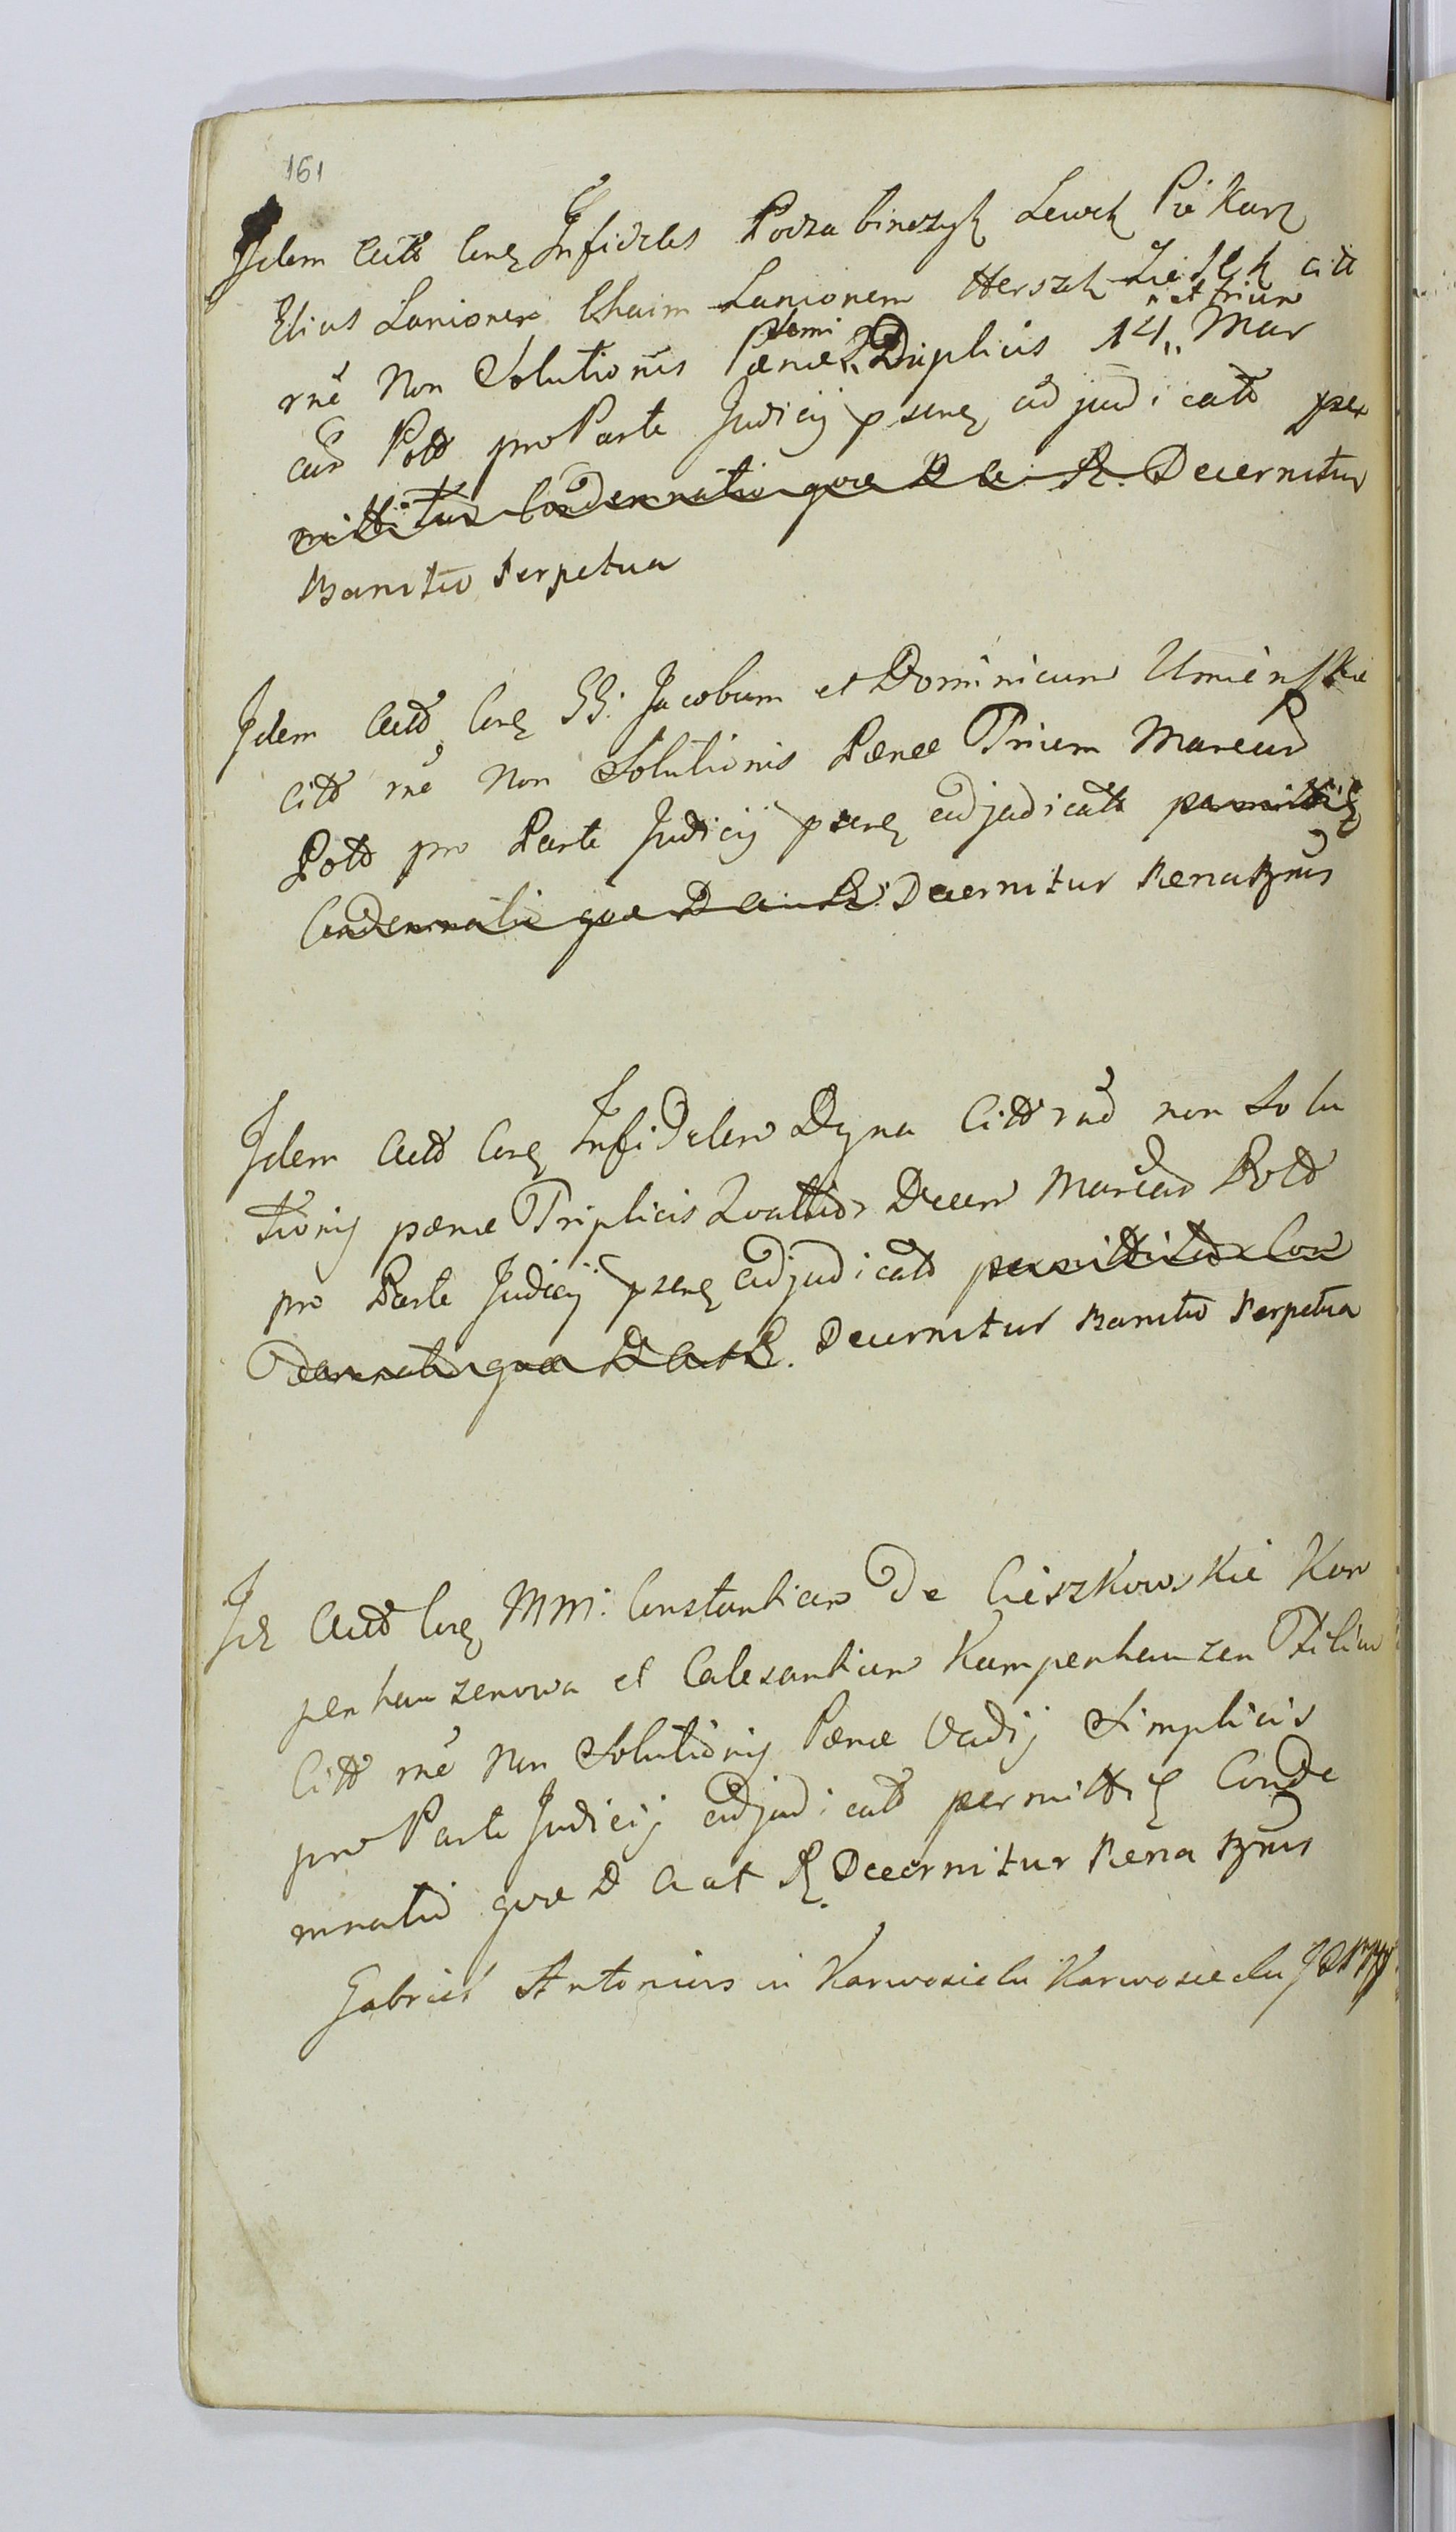 161
Idem Actt Conq Infideles Podrabinczyk Lewek Piekarz
Elius Lanionem Chaim Lanionem Herszek Ziełek citt
rñe Non Solutionis Pænæ Duplicis 14 Mar
car Pott pro Parte Judicij pserq adjudicatt per
mittitur Condemnatio quæ D Decernitur
Banitio Perpetua
Idem Actt Conq GG: Jacobum et Dominicum Umieńskie
Citt rñe Non Solutionis Pænæ Trium Marcar
Pott pro Parte Judicij pserq adjudicatt permittiq
Condemnatio quæ D Decernitur Pena Bznis
Idem Actt Conq Infidelem Dyna Citt rñe non Solu
tionis pænæ Triplicis Quattuor Decem Marcar Pott
pro Parte Judicij pserq adjudicatt permittitur Con
demnatio quæ D Decernitur Banitio Perpetua
Id Actt Conq MM: Constantiam De Cieszkowskie Kam
penhauzenowa et Calesantium Kampenhauzen Filium
Citt rñe Non Solutionis Pænæ Vadij Simplicis
pro Parte Judicij adjudicatt permittiq Conde
mnatio quæ D A at R. Decernitur Pena Bznis
Gabriel Antonius in Karwosiek Karwosiecki